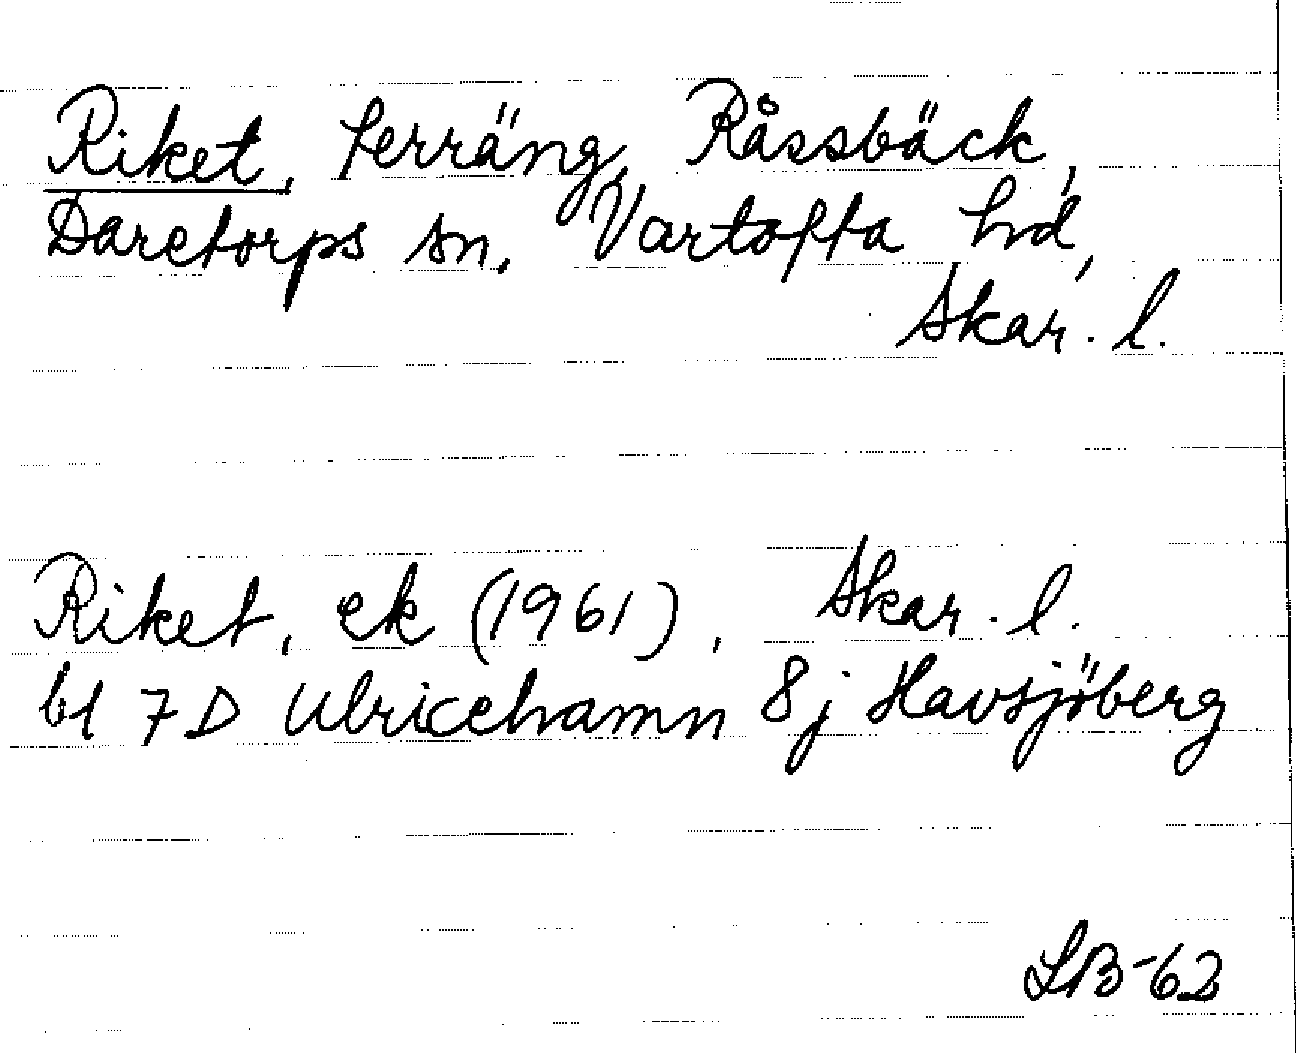 Riket, terräng, Råssbäck,
Daretorps sn. Vartofta hd,
Skar. l.
Riket, ek (1961), Skar. l.
bl 7D Ulricehamn 8j Havsjöberg
LB-62